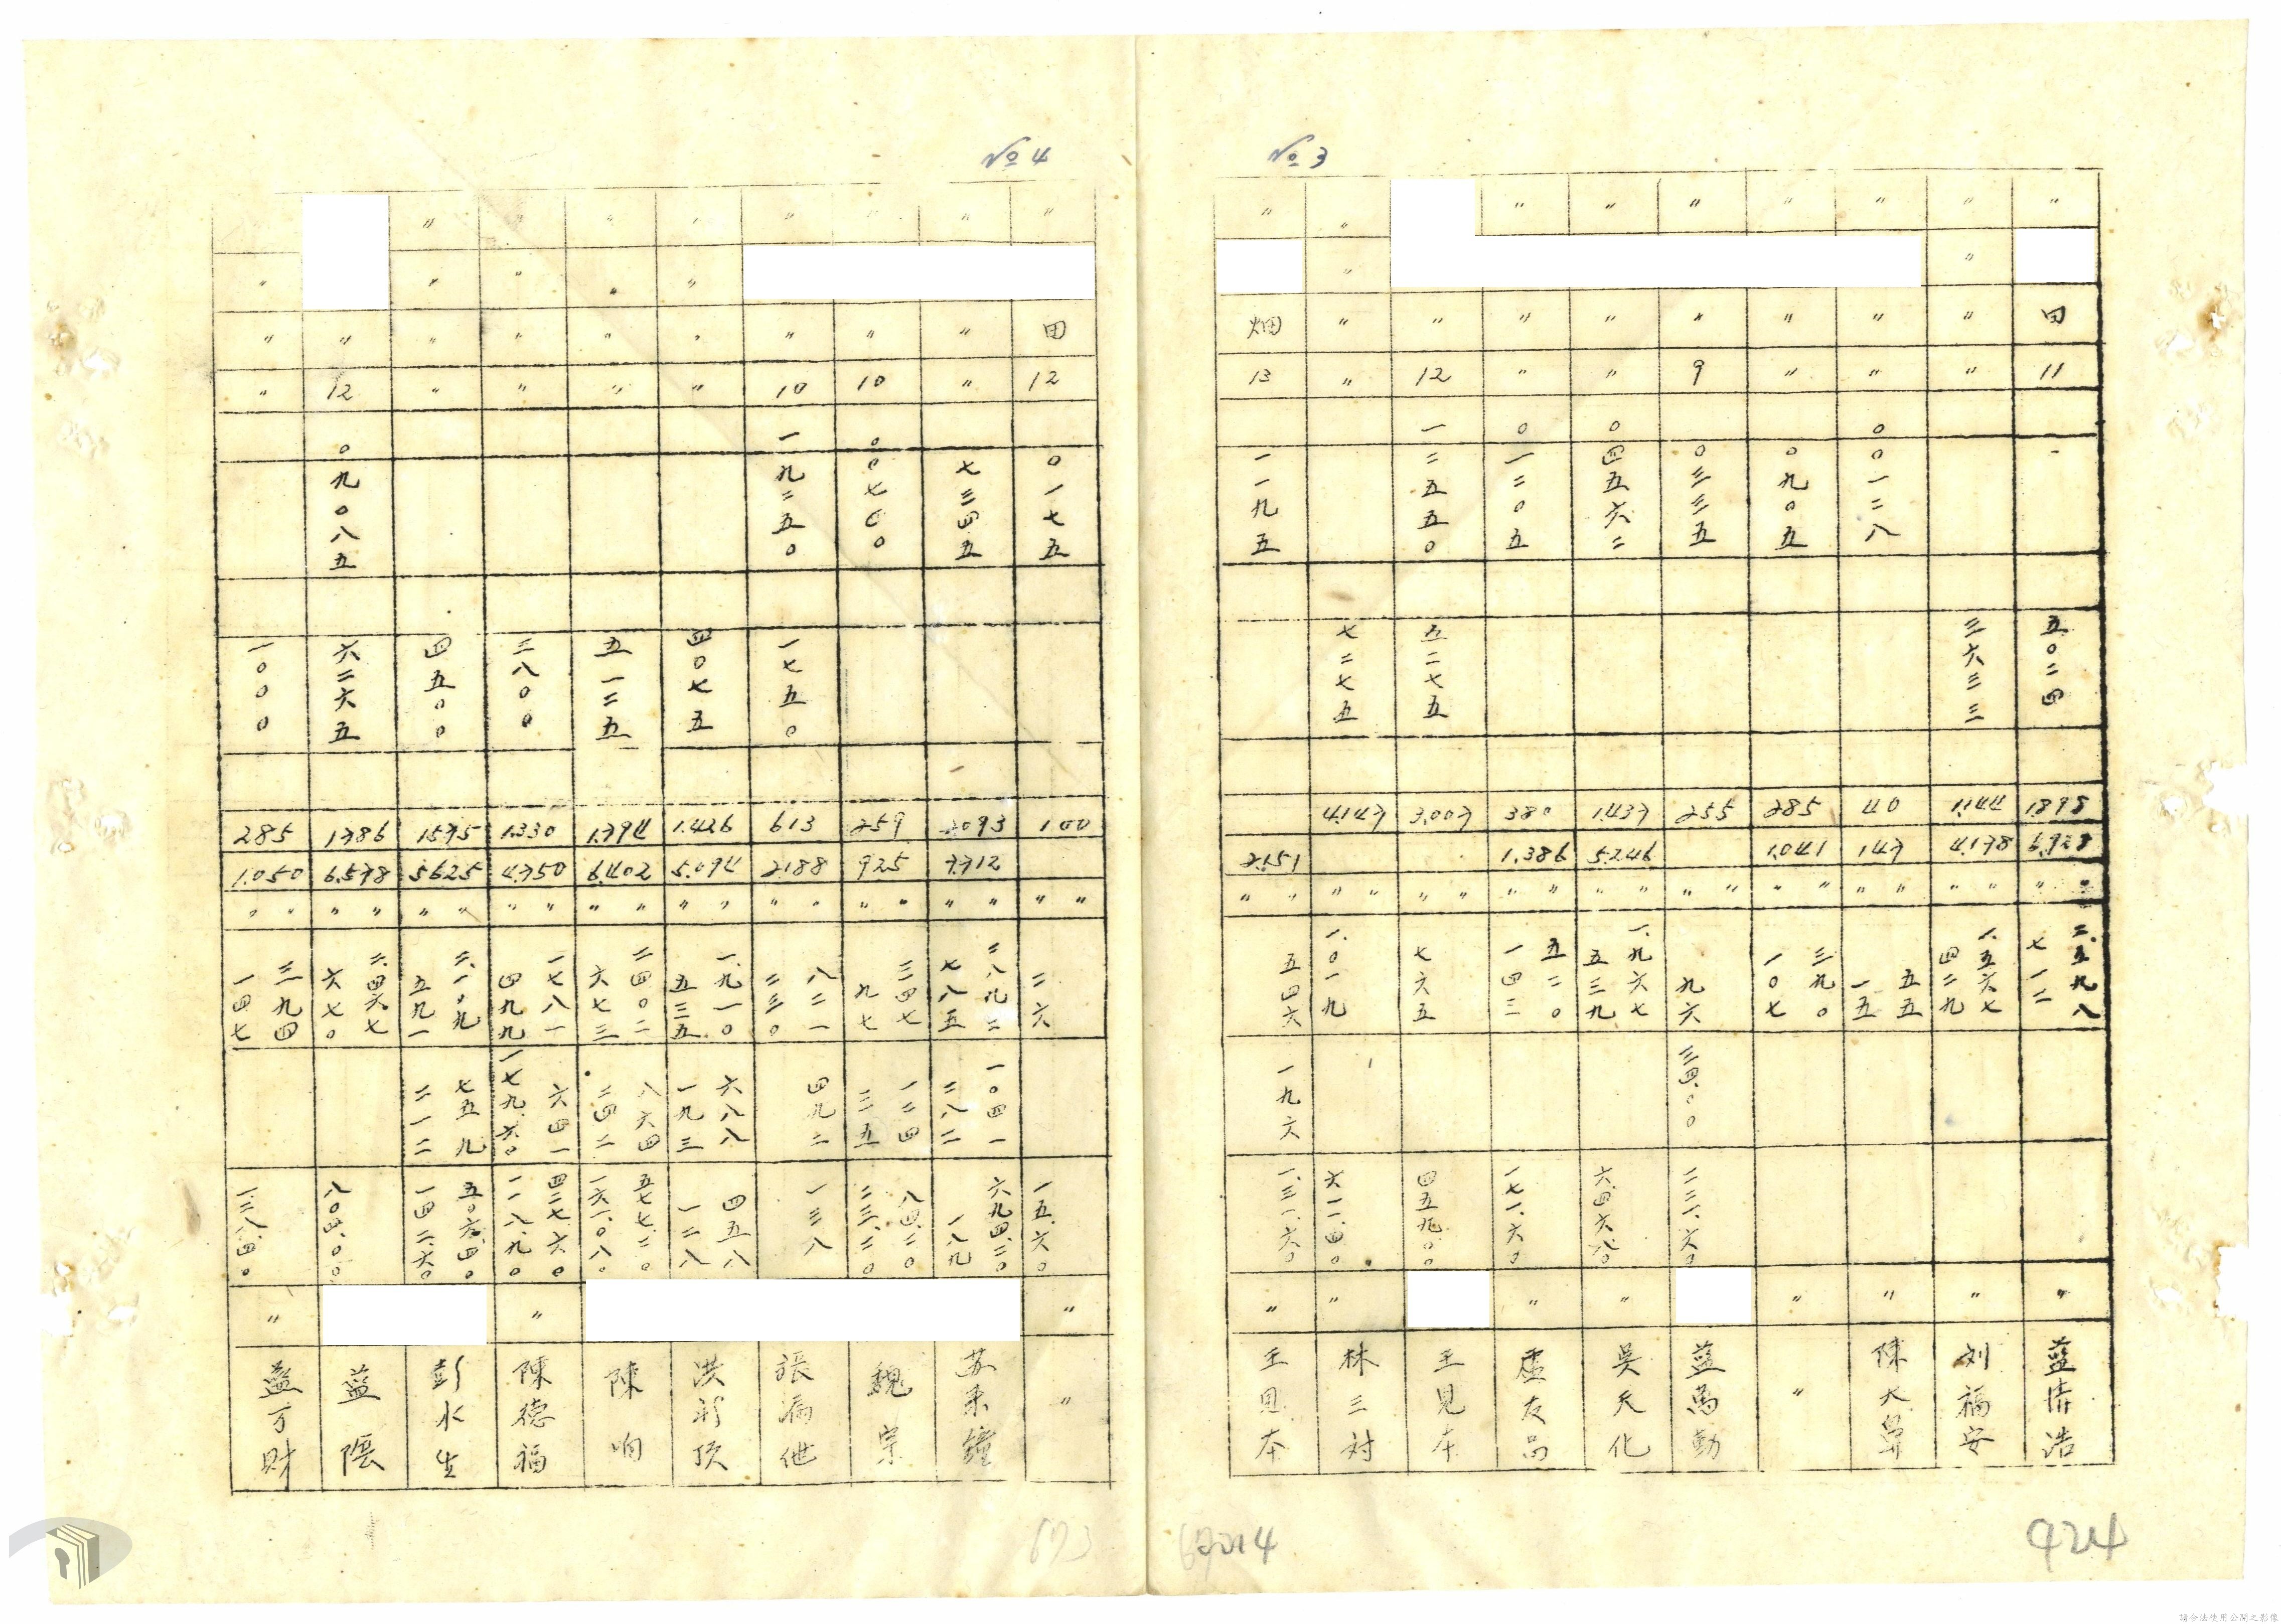 № 3
〃 田 11 五〇二四 1.898 6.928 〃 〃 二.五九八 七一二 〃 藍清浩
〃 〃 〃 〃 三六三三 1.144 4.178 〃 〃 一.五六七 四二九 〃 刘福安
〃 〃 〃 〇〇一二八 40 147 〃 〃 五五 一五 〃 陳大鼻
〃 〃 〃 〇九〇五 285 1.041 〃 〃 三九〇 一〇七 〃 〃
〃 〃 9 〇三三五 255 〃 〃 九六 三四.〇〇 二二一.六〇 藍萬動
〃 〃 〃 〇四五六二 1.437 5.246 〃 〃 一.九六七 五三九 六.四六.八〇 〃 吳天化
〃 〃 〃 〇一二〇五 380 1.386 〃 〃 五二〇 一四三 一七一.六〇 〃 盧友品
〃 12 一二五五〇 五二七五 3.007 〃 〃 七六五 四五九.〇〇 王見本
〃 〃 〃 〃 七二七五 4.147 〃 〃 一.〇一九 六一一.四〇 〃 林三対
〃 畑 13 一一九五 2.151 〃 〃 五四六 一九六 一.三一.六〇 〃 王見本
№ 4
〃 田 12 〇一七五 100 〃 〃 二六 一五.六〇 〃 〃
〃 〃 〃 七三四五 2.093 7.712 〃 〃 二八九二 七八五 一〇四一 二八二 六九四.二〇 一八九 苏来鐘
〃 10 〇〇七〇〇 259 925 〃 〃 三四七 九七 一二四 三三五 八四.二〇 二三二.二〇 魏宗
〃 〃 10 一九二五〇 一七五〇 613 2.188 〃 〃 八二一 二三〇 四九二 一三八 張滿世
〃 〃 〃 〃 四〇七五 1.426 5.094 〃 〃 一.九一〇 五三五 六八八 一九三 四五八 一二八 洪彩頂
〃 〃 〃 〃 五一二五 1.794 6.402 〃 〃 二四〇二 六七三 八六四 二四二 五七七.二〇 一六一.〇八〇 陳响
〃 〃 〃 〃 三八〇〇 1.330 4.750 〃 〃 一七八一 四九九 六四一 一七九.六〇 四二七.六〇 一一八.九〇 〃 陳德福
〃 〃 〃 〃 四五〇〇 1.575 5.625 〃 〃 二.一.九 五九一 七五九 二一二 五〇六.四〇 一四二.六〇 彭水生
〃 12 〇九〇八五 六二六五 1.786 6.578 〃 〃 二.四六七 六七〇 八〇四.〇〇 藍陰
〃 〃 〃 一〇〇〇 285 1.050 〃 〃 三九四 一四七 一二八.四〇 〃 藍万財
673
924
請合法使用公開之影像